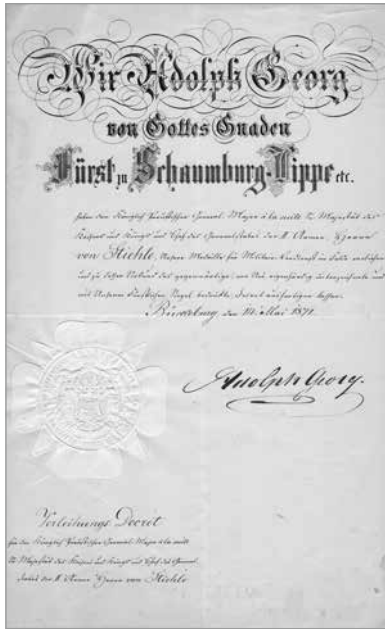 Wir Adolph Georg
von Gottes Gnaden
Fürst zu Schaumburg-Lippe etc.
haben dem Königlich Preußischen General-Major à la suite Sr. Majestät des
Kaisers und Königs und Chef des Generalstabes der II. Armee, Herrn
von Stiehle, Unsere Medaille für Militair-Verdienst im Felde verliehen
und zu dessen Urkund das gegenwärtige, von Uns eigenhändig unterzeichnete und
mit Unserem Fürstlichen Siegel bedruckte, Decret ausfertigen lassen.
Bückeburg, den 14. Mai 1871.
Adolph Georg.
Verleihungs Decret
für den Königlich Preußischen General-Major à la suite
Sr. Majestät des Kaisers und Königs und Chef des General-
stabes der II. Armee Herrn von Stiehle